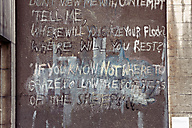 DON'T VIEW ME WITH CONTEMPT
TELL ME,
WHERE WILL YOU
YOUR FLOCK
WHERE WILL YOU REST?
IF YOU KNOW NOT WHERE TO
GRAZE FOLLOW THE FOOTSTEPS
OF THE SHEEP